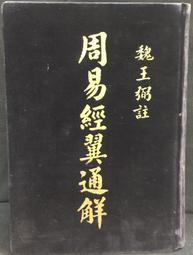 魏王弼註
周易經翼通解